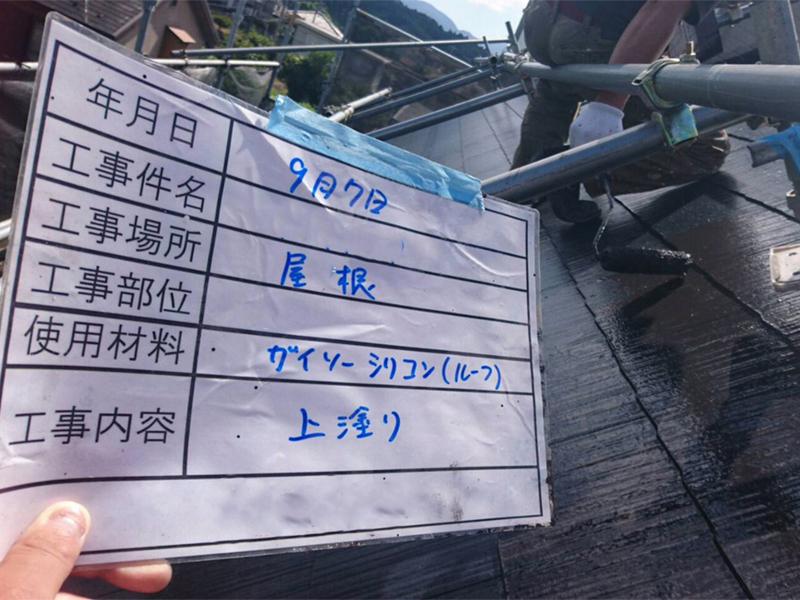 年月日 9月7日
工事件名
工事場所 屋根
工事部位
使用材料 ガイソーシリコン(ルーフ)
工事内容 上塗り